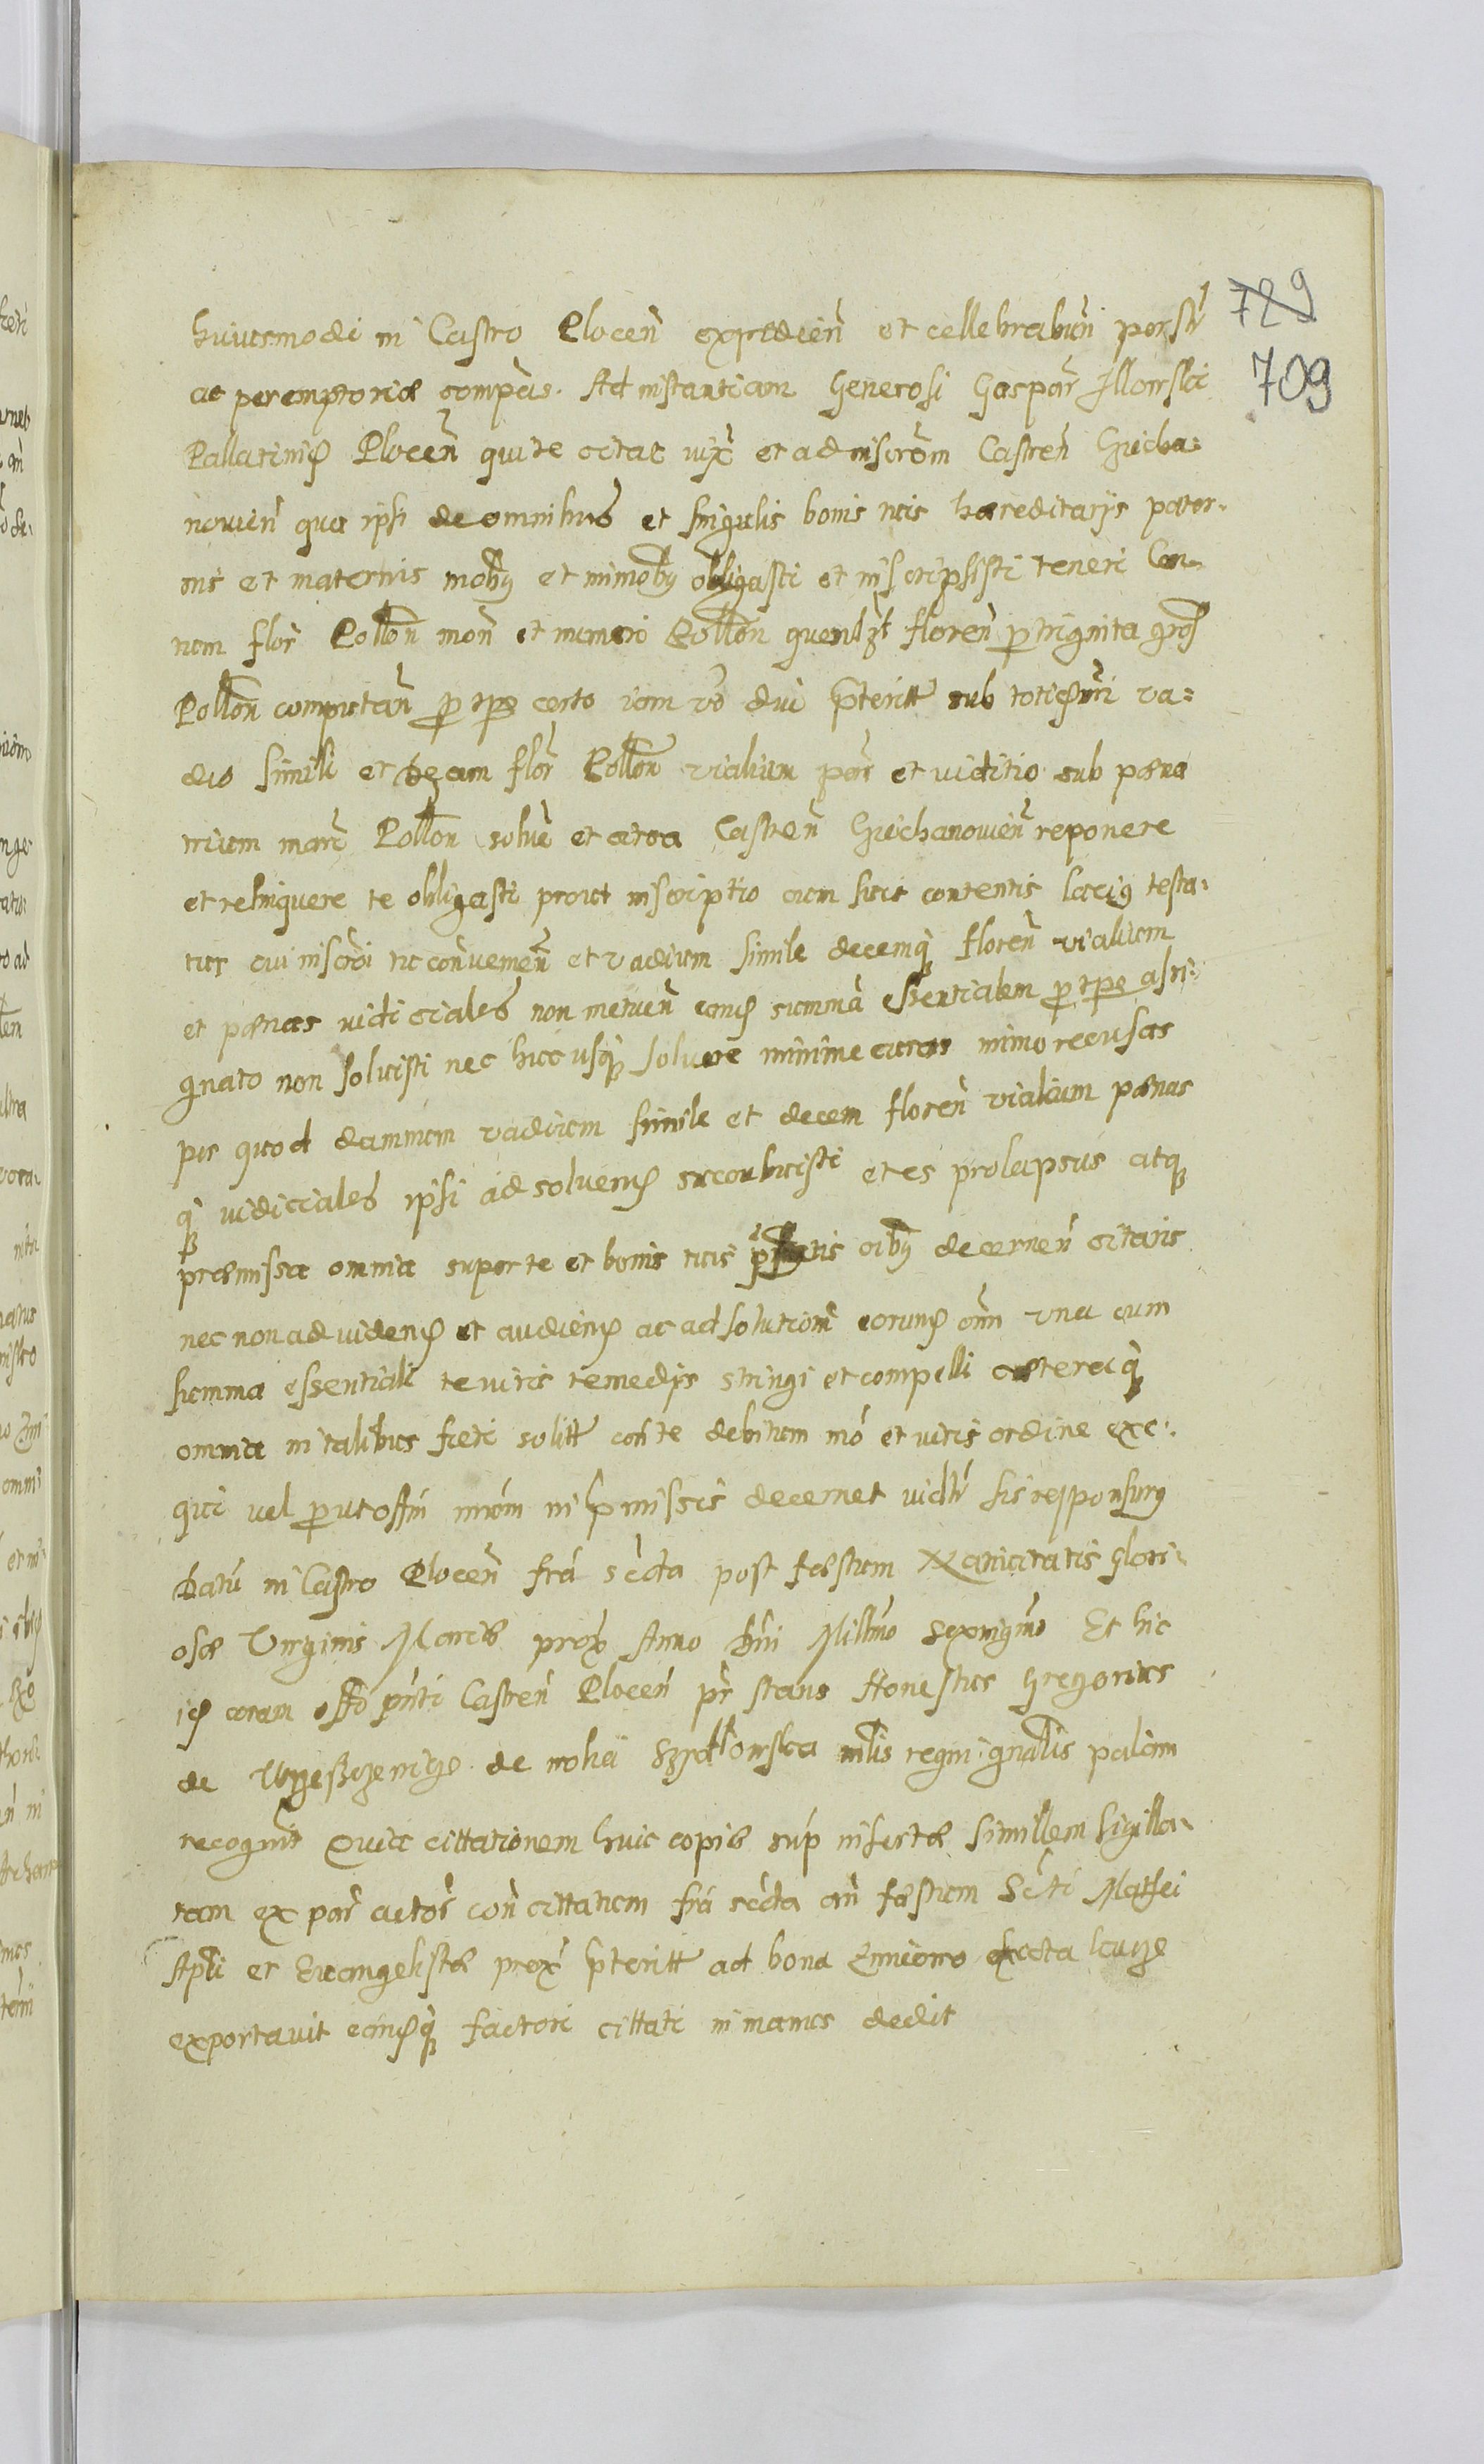 729
709
huiusmodi in Castro Plocen̄ expedien̄ et cellebrabun̄ personr̄
ac peremptoriæ compās. Ad instantiam Generosi Gaspar̄ Illowski
Pallatinid Plocen̄ qui te citat iux̄ et ad inscrōm Castren̄ Cziecha=
novien̄ qua ipsi de omnibus et singulis bonis tuis hæreditarys pater.
nis et maternis mobby et immobby obligasti et inscripsisti teneri Cen.
tum flor̄ Pollōn mon̄ et numeri Pollōn quenlzt floren̄ p triginta gros
Pollōn computan̄ p tpe certo iam vō diu pteritt sub totiusm̄i va=
dio simili et decem flor̄ Pollōn vialium par̄ et iuditio sub pæna
trium marc̄ Pollōn solue et acta Castren̄ Czichanowien̄ reponere
et relinquere te obligasti prout inscriptio cum suis contentis latius testa.
tur cui inscrōi tu con̄uenien̄ et vadium simile decemq floren̄ vialium
et pænas iudiciales non metuen̄ eand summā essentialem p tpe asti.
gnato non soluisti nec huc usq soluere minime curas nimo recusas
per quod damnum vadium simile et decem floren̄ vialium pænas
q iudiciales ipsi ad soluend succubuisti et es prolapsus atq
præmissa omnia super te et bonis tuis oibq decernen̄ citaris
nec non ad videnđ et audienđ ac ad solutiōm eorund om̄ vna cum
summa essentiali te iuris remedijs stringi et compelli cæteraq
omnia in talibus fieri solitt con̄ te debitum mō et iuris ordine exe.
qui vel p ut offm nrōm in pmissis decernet iudr̄ sis responsurg
Datū in Castro Plocen̄ frā secda post fæstum Natiuitatis Glori.
osæ Virginis Mariæ prox Anno Dn̄i Millmo Sexingmo Et hic
id coram offo pn̄ti Castren̄ Plocen̄ pr̄ stans Honestus Gregorius
de Wrzeszczenicze de mohci Szydłowska mlis regni gnalis palam
recognit Quia cittationem huic copiæ sup insertæ simillem sigilla.
tam ex par̄ actor̄ con̄ cittatum frā secda an̄ fæstum Scti Mathei
Apli et Euangelistæ prox̄ pteritt ad bona Zmiewo
exportauit eandq factori cittati in manus dedit